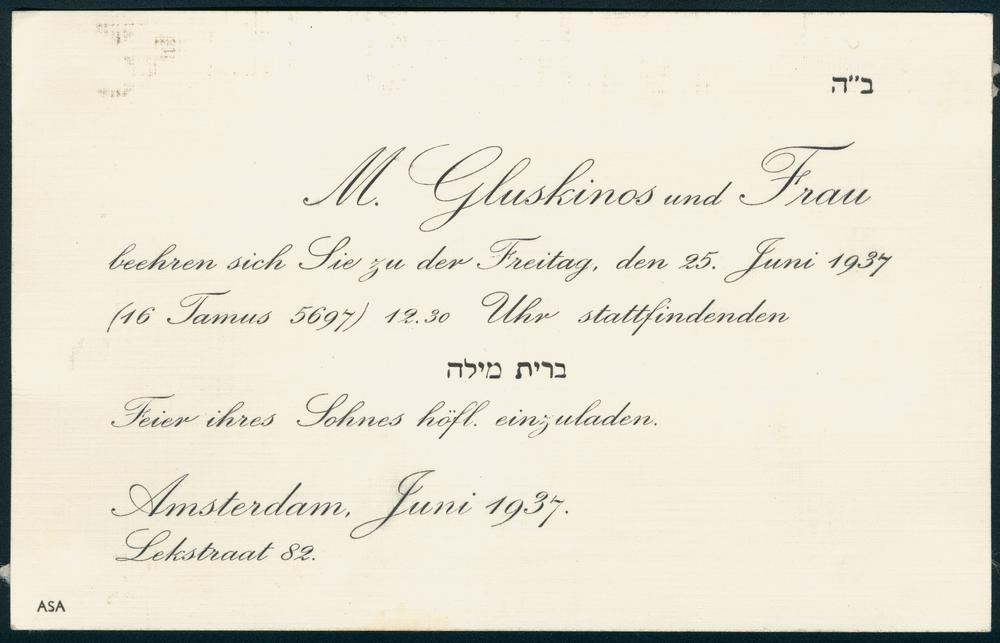 ב"ה
M. Gluskinos und Frau
beehren sich Sie zu der Freitag, den 25. Juni 1937
(16 Tamus 5697) 12.30 Uhr stattfindenden
ברית מילה
Feier ihres Sohnes höfl. einzuladen.
Amsterdam, Juni 1937.
Lekstraat 82.
ASA